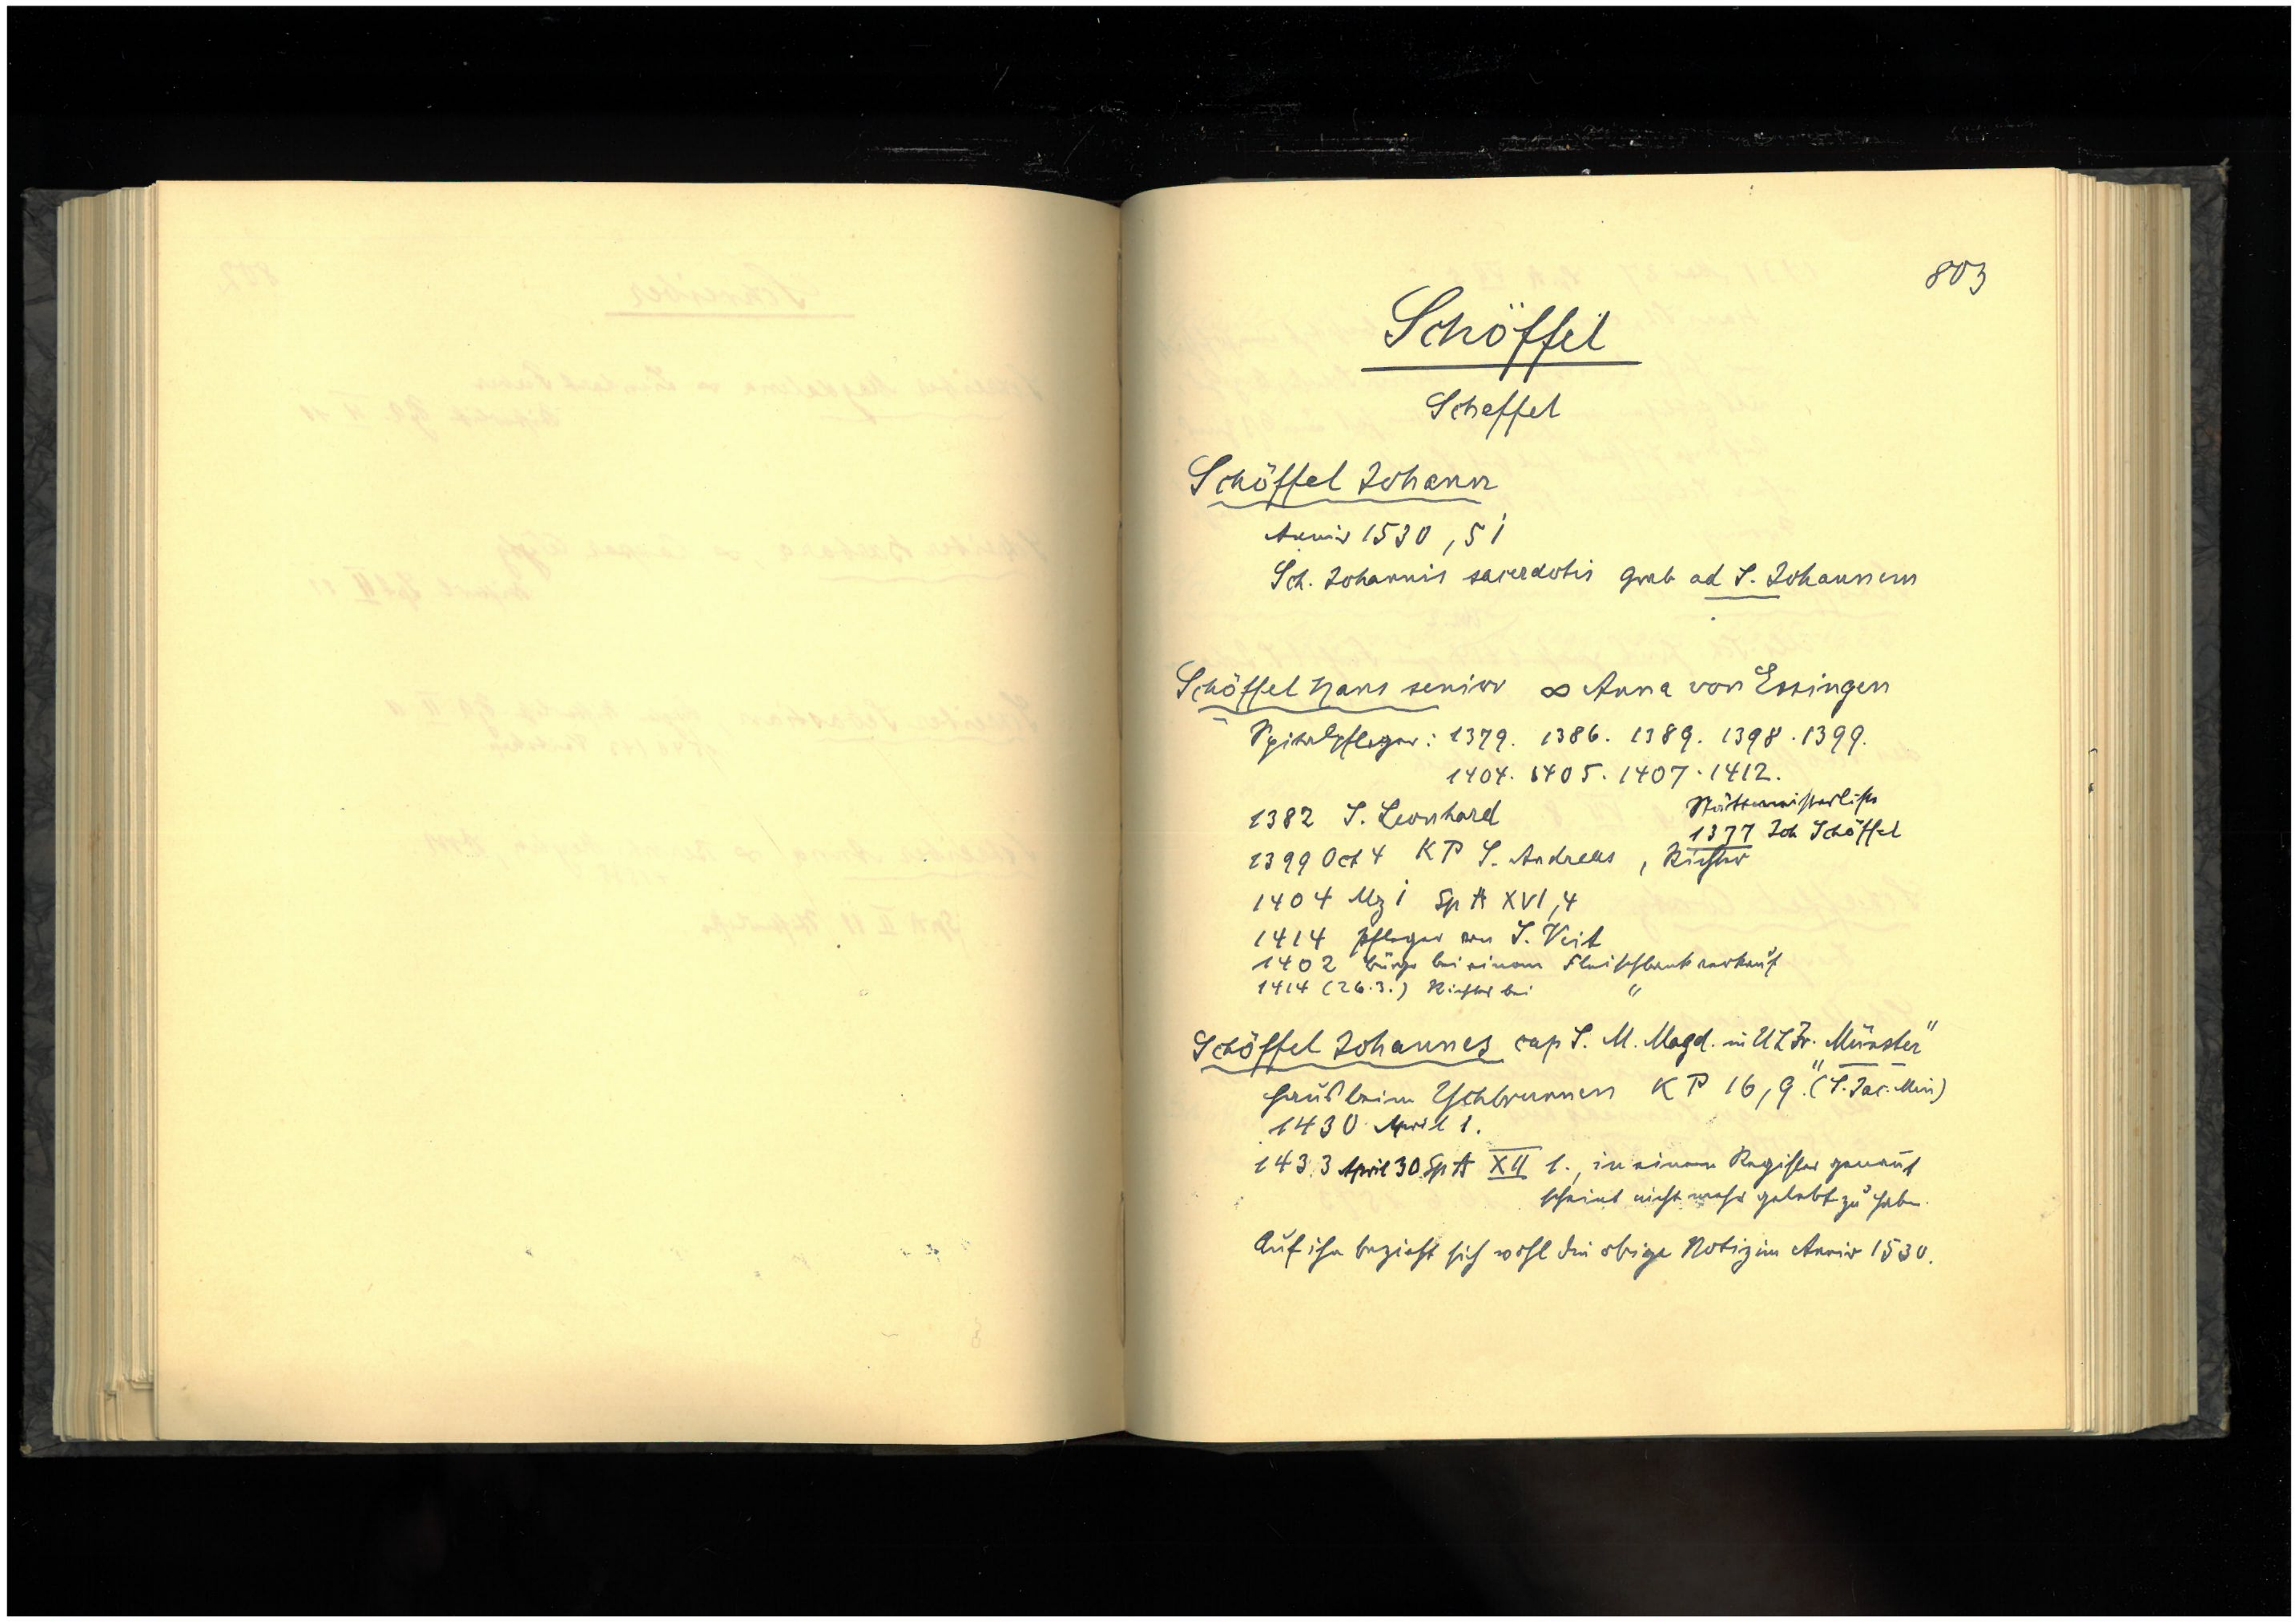 803
Schöffel
Scheffel
Schöffel Johann
Anniv 1530, 51
Sch. Johannis sacerdotis Grab ad S. Johannem
Schöffel Hans senior ∞ Anna von Essingen
Spitalpfleger: 1379. 1386. 1389. 1398. 1399.
1404. 1405. 1407. 1412.
1382 S. Leonhard
Stättmeisterliste
1377 Joh Schöffel
1399 Oct 4 KP S. Andreas, Richter
1404 Mz 1 Sp A XVI, 4
1414 Pfleger von S. Veit
1402 Bürge bei einem Fleischbankverkauf
1414 (26.3.) Richter bei "
Schöffel Johannes cap S. M. Magd. in ULFr. Münster"
Haus beim Yschbrunnen KP 16, 9. "(S. Jac. Min)
1430 April 1.
1433 April 30 Sp A XII 1., in einem Register genannt
scheint nicht mehr gelebt zu haben.
Auf ihn bezieht sich wohl die obige Notiz im Anniv 1530.